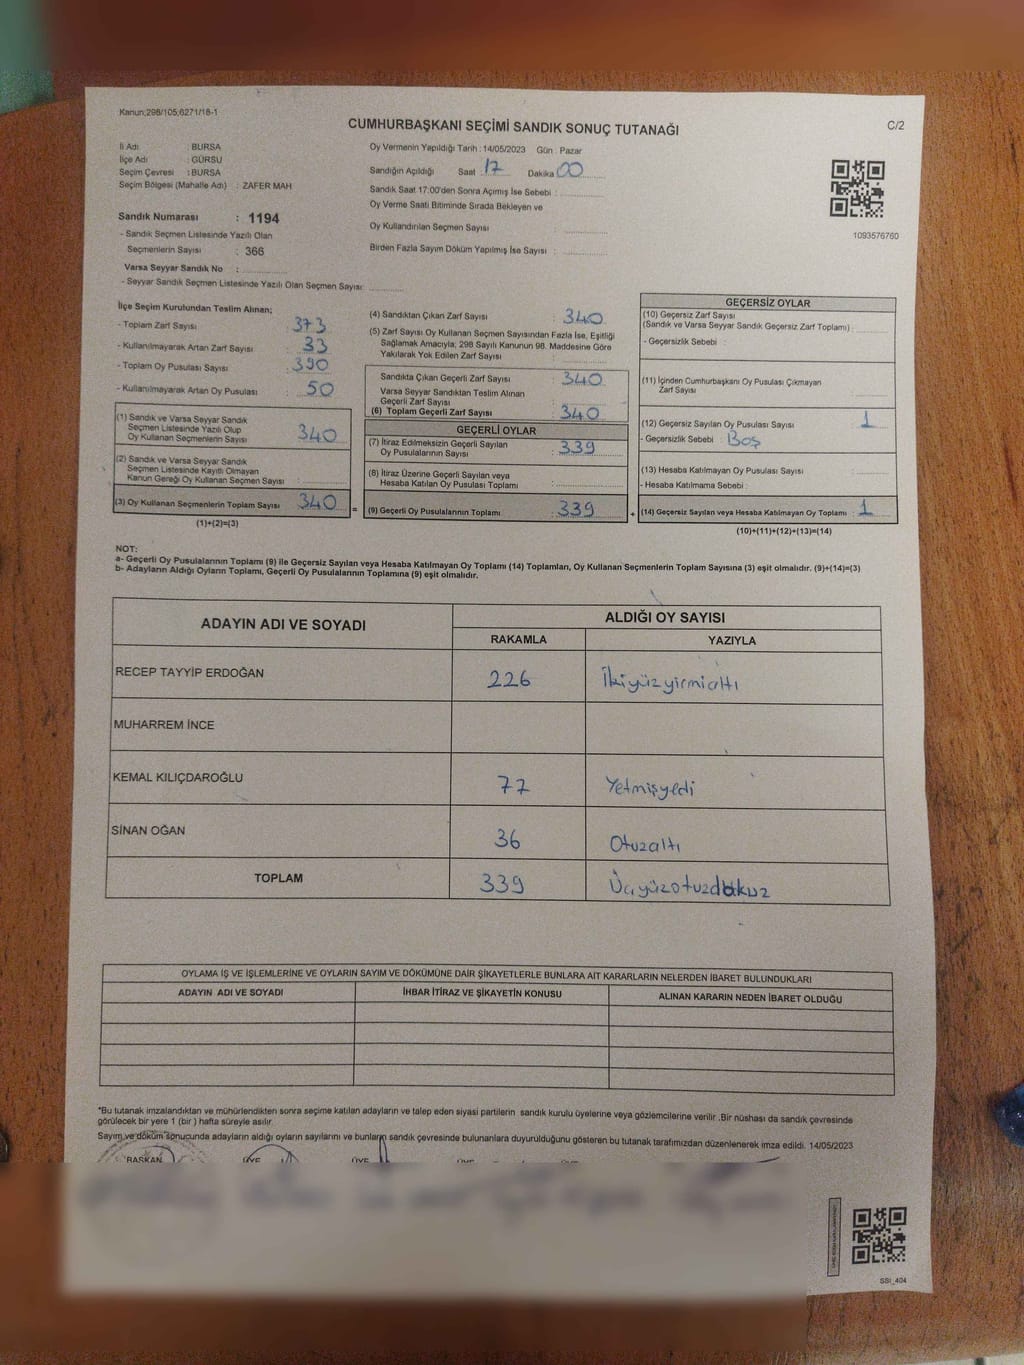 Kanun;298/105;6271/18-1
CUMHURBAŞKANI SEÇİMİ SANDIK SONUÇ TUTANAĞI
C/2
İl Adı : BURSA
İlçe Adı : GÜRSU
Seçim Çevresi : BURSA
Seçim Bölgesi (Mahalle Adı) : ZAFER MAH
Sandık Numarası : 1194
- Sandık Seçmen Listesinde Yazılı Olan
Seçmenlerin Sayısı : 366
Varsa Seyyar Sandık No :
- Seyyar Sandık Seçmen Listesinde Yazılı Olan Seçmen Sayısı:
Oy Vermenin Yapıldığı Tarih : 14/05/2023 Gün : Pazar
Sandığın Açıldığı Saat : 17 Dakika 00
Sandık Saat 17:00'den Sonra Açımış İse Sebebi :
Oy Verme Saati Bitiminde Sırada Bekleyen ve
Oy Kullandırılan Seçmen Sayısı :
Birden Fazla Sayım Döküm Yapılmış İse Sayısı :
1093576760
İlçe Seçim Kurulundan Teslim Alınan;
- Toplam Zarf Sayısı : 373
- Kullanılmayarak Artan Zarf Sayısı : 33
- Toplam Oy Pusulası Sayısı : 390
- Kullanılmayarak Artan Oy Pusulası : 50
(1) Sandık ve Varsa Seyyar Sandık
Seçmen Listesinde Yazılı Olup
Oy Kullanan Seçmenlerin Sayısı : 340
(2) Sandık ve Varsa Seyyar Sandık
Seçmen Listesinde Kayıtlı Olmayan
Kanun Gereği Oy Kullanan Seçmen Sayısı :
(3) Oy Kullanan Seçmenlerin Toplam Sayısı : 340 =
(1)+(2)=(3)
(4) Sandıktan Çıkan Zarf Sayısı : 340
(5) Zarf Sayısı Oy Kullanan Seçmen Sayısından Fazla İse, Eşitliği
Sağlamak Amacıyla; 298 Sayılı Kanunun 98. Maddesine Göre
Yakılarak Yok Edilen Zarf Sayısı :
Sandıkta Çıkan Geçerli Zarf Sayısı : 340
Varsa Seyyar Sandıktan Teslim Alınan
Geçerli Zarf Sayısı :
(6) Toplam Geçerli Zarf Sayısı : 340
GEÇERLİ OYLAR
(7) İtiraz Edilmeksizin Geçerli Sayılan
Oy Pusulalarının Sayısı : 339
(8) İtiraz Üzerine Geçerli Sayılan veya
Hesaba Katılan Oy Pusulası Toplamı :
(9) Geçerli Oy Pusulalarının Toplamı : 339 +
GEÇERSİZ OYLAR
(10) Geçersiz Zarf Sayısı
(Sandık ve Varsa Seyyar Sandık Geçersiz Zarf Toplamı) :
- Geçersizlik Sebebi :
(11) İçinden Cumhurbaşkanı Oy Pusulası Çıkmayan
Zarf Sayısı :
(12) Geçersiz Sayılan Oy Pusulası Sayısı : 1
- Geçersizlik Sebebi : Boş
(13) Hesaba Katılmayan Oy Pusulası Sayısı :
- Hesaba Katılmama Sebebi :
(14) Geçersiz Sayılan veya Hesaba Katılmayan Oy Toplamı : 1
(10)+(11)+(12)+(13)=(14)
NOT:
a- Geçerli Oy Pusulalarının Toplamı (9) ile Geçersiz Sayılan veya Hesaba Katılmayan Oy Toplamı (14) Toplamları, Oy Kullanan Seçmenlerin Toplam Sayısına (3) eşit olmalıdır. (9)+(14)=(3)
b- Adayların Aldığı Oyların Toplamı, Geçerli Oy Pusulalarının Toplamına (9) eşit olmalıdır.
ADAYIN ADI VE SOYADI
ALDIĞI OY SAYISI
RAKAMLA YAZIYLA
RECEP TAYYİP ERDOĞAN 226 İkiyüzyirmialtı
MUHARREM İNCE
KEMAL KILIÇDAROĞLU 77 Yetmişyedi
SİNAN OĞAN 36 Otuzaltı
TOPLAM 339 Üçyüzotuzdokuz
OYLAMA İŞ VE İŞLEMLERİNE VE OYLARIN SAYIM VE DÖKÜMÜNE DAİR ŞİKAYETLERLE BUNLARA AİT KARARLARIN NELERDEN İBARET BULUNDUKLARI
ADAYIN ADI VE SOYADI İHBAR İTİRAZ VE ŞİKAYETİN KONUSU ALINAN KARARIN NEDEN İBARET OLDUĞU
*Bu tutanak imzalandıktan ve mühürlendikten sonra seçime katılan adayların ve talep eden siyasi partilerin sandık kurulu üyelerine veya gözlemcilerine verilir .Bir nüshası da sandık çevresinde
görülecek bir yere 1 (bir ) hafta süreyle asılır.
Sayım ve döküm sonucunda adayların aldığı oyların sayılarını ve bunların sandık çevresinde bulunanlara duyurulduğunu gösteren bu tutanak tarafımızdan düzenlenerek imza edildi. 14/05/2023
BAŞKAN ÜYE ÜYE ÜYE ÜYE
SSI_404